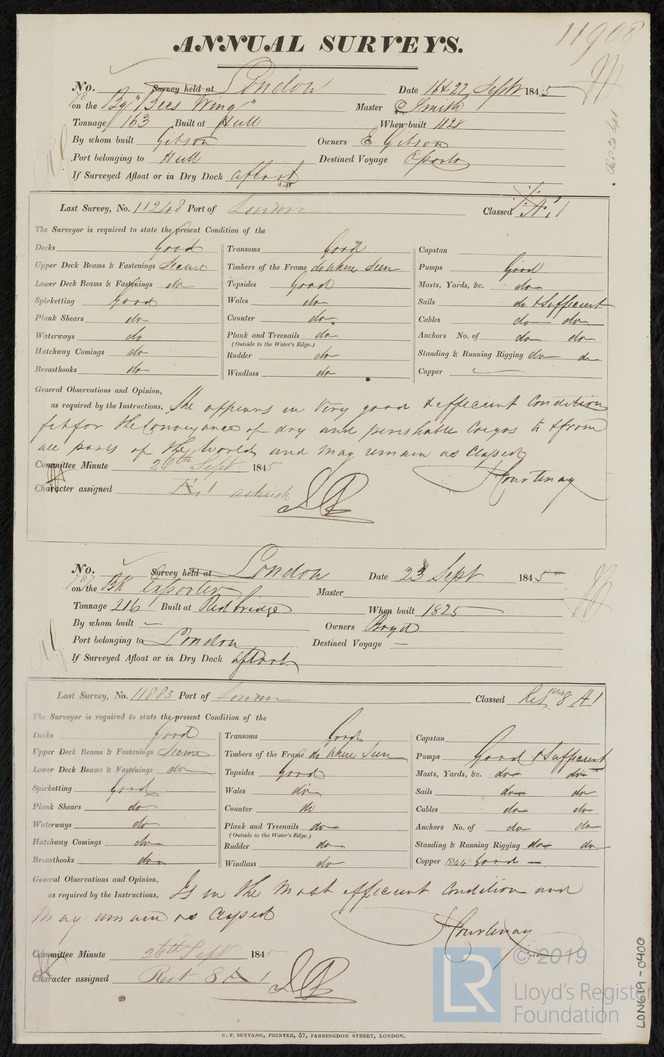 11908
ANNUAL SURVEYS.
No. Survey held at London Date 16 & 22 Sept 1845
on the Bg "Bees Wing" Master C Smith
Tonnage 163 Built at Hull When built 1828
By whom built Gibson Owners E Gibson
Port belonging to Hull Destined Voyage Oporto
If Surveyed Afloat or in Dry Dock afloat
Last Survey, No. 11248 Port of London Classed *A*1
The Surveyor is required to state the present Condition of the
Decks Good
Upper Deck Beams & Fastenings Secure
Lower Deck Beams & Fastenings do
Spirketting Good
Plank Shears do
Waterways do
Hatchway Comings do
Breasthooks do
Transoms Good
Timbers of the Frame do where seen
Topsides Good
Wales do
Counter do
Plank and Treenails do
(Outside to the Water's Edge.)
Rudder do
Windlass do
Capstan
Pumps Good
Masts, Yards, &c. do
Sails do & Sufficient
Cables do do
Anchors No. of do do
Standing & Running Rigging do do
Copper
General Observations and Opinion,
as required by the Instructions, She appears in very good & efficient Condition
fit for the Conveyance of dry and perishable Cargos to & from
all parts of the World and may remain as Classed
Committee Minute 26th Sept 1845 J Courtenay
Character assigned *A*1
No. Survey held at London Date 23 Sept 1845
on the Bk Exporter Master
Tonnage 216 Built at Redbridge When built 1825
By whom built – Owners Boyd
Port belonging to London Destined Voyage –
If Surveyed Afloat or in Dry Dock afloat
Last Survey, No. 11883 Port of London Classed Rest 1844 8 A1
The Surveyor is required to state the present Condition of the
Decks Good
Upper Deck Beams & Fastenings Secure
Lower Deck Beams & Fastenings do
Spirketting Good
Plank Shears do
Waterways do
Hatchway Comings do
Breasthooks do
Transoms Good
Timbers of the Frame do where seen
Topsides Good
Wales do
Counter do
Plank and Treenails do
(Outside to the Water's Edge.)
Rudder do
Windlass do
Capstan
Pumps Good & Sufficient
Masts, Yards, &c. do do
Sails do do
Cables do do
Anchors No. of do do
Standing & Running Rigging do do
Copper 1844 Good
General Observations and Opinion,
as required by the Instructions, Is in the most efficient Condition and
May remain as Classed
J Courtenay
Committee Minute 26th Sept 1845
Character assigned Rest 8 A 1
C. F. SEYFANG, PRINTER, 57, FARRINGDON STREET, LONDON.
LR
© 2019
Lloyd's Register
Foundation
LON619-0400